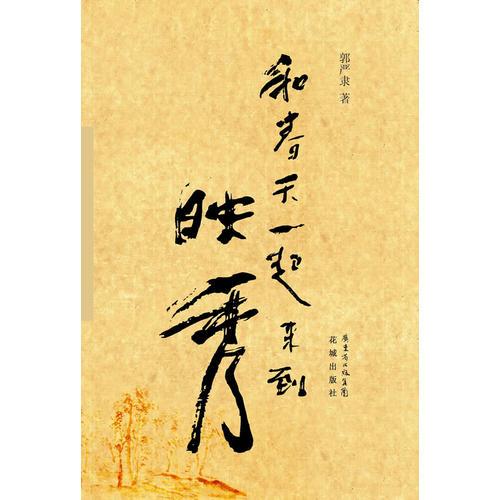 郭严隶 著
和春天一起来到
映秀
广东省出版集团
花城出版社